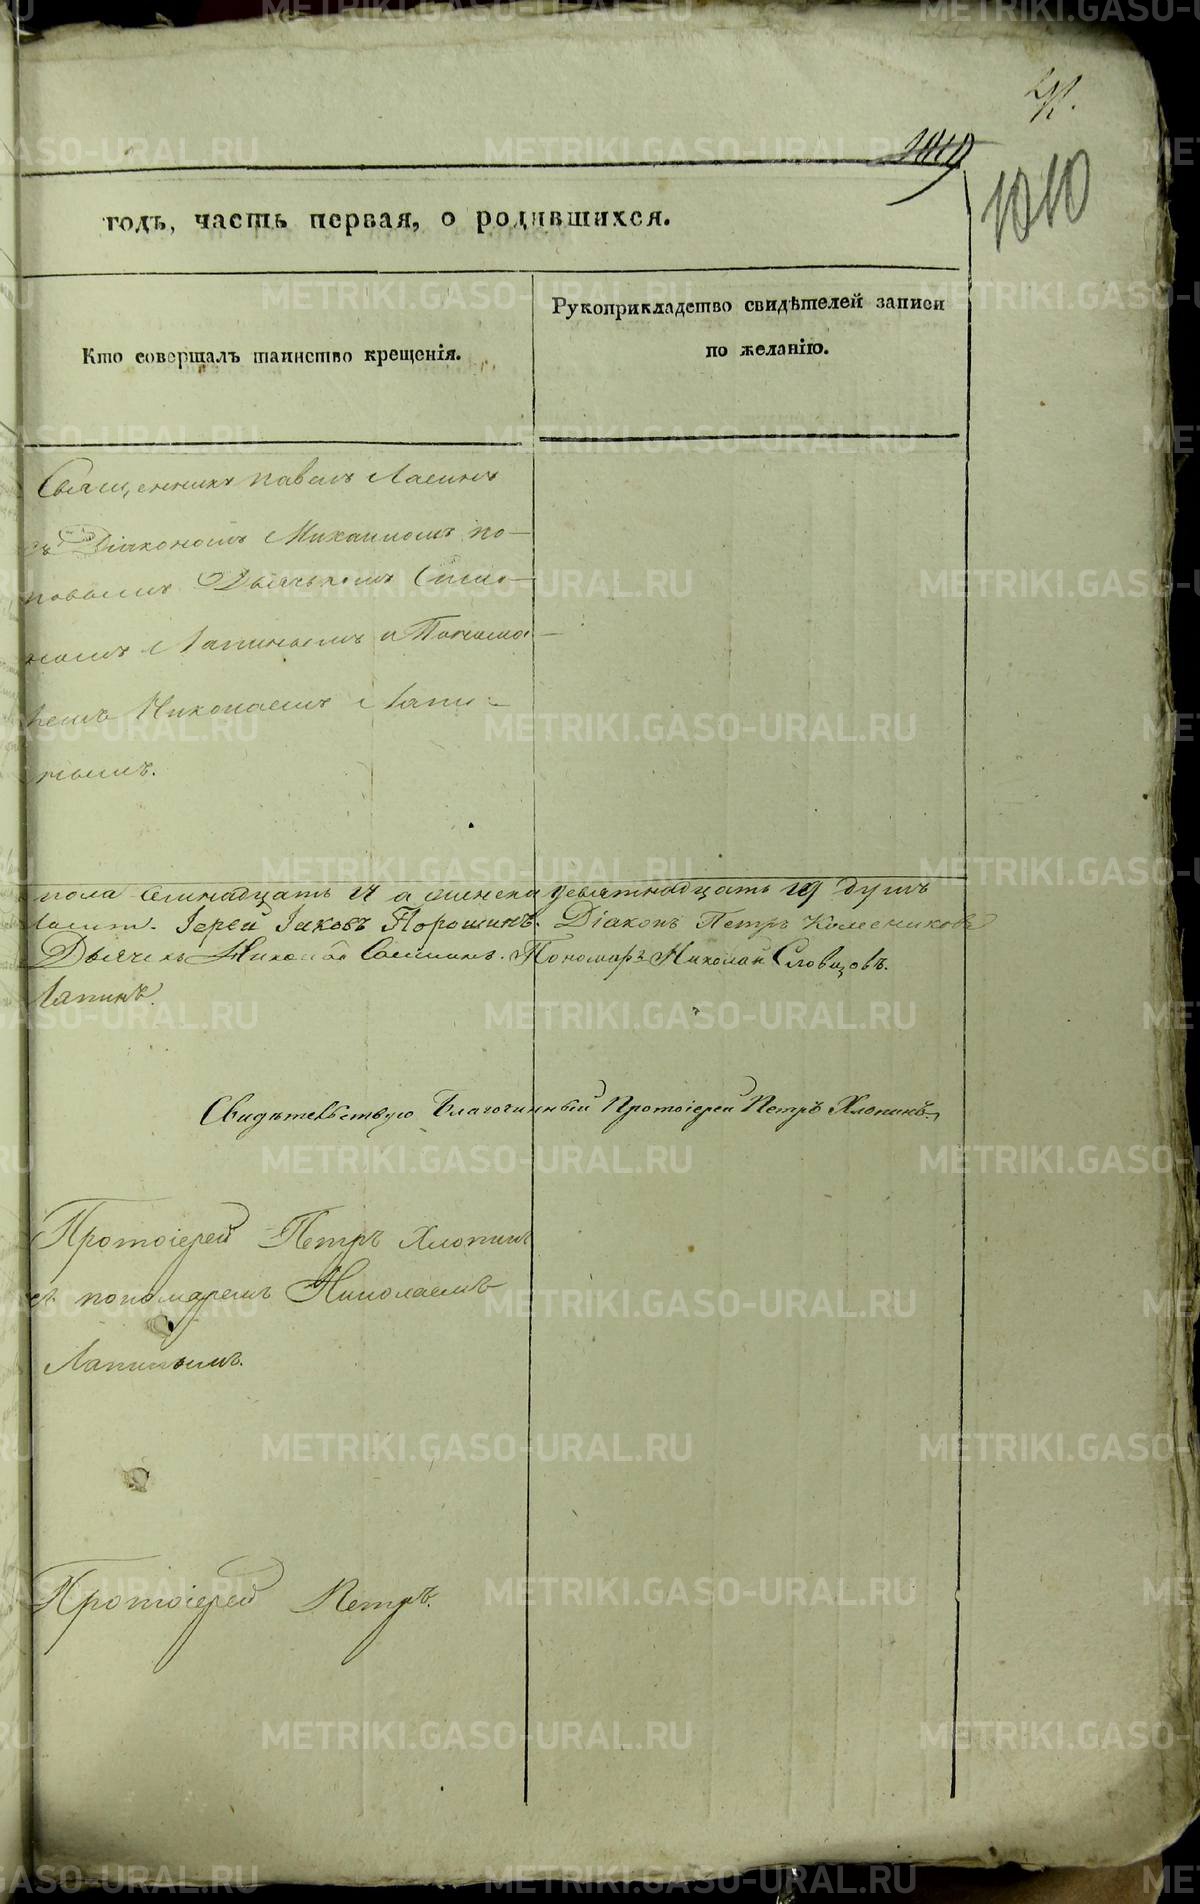 1019
1010
годъ, часть первая, о родившихся.
Кто совершалъ таинство крещенія.
Рукоприкладство свидѣтелей записи
по желанію.
Священникъ павелъ
съ Діакономъ Михаиломъ по-
повымъ Дьячькомъ
Лапинымъ и Понома-
Николаемъ Лапи-
нымъ.
пола семнадцать 17 а женска девятнадцать 19 душъ
Іерей Іаковъ Порошинъ. Діаконъ Петръ Колесниковъ
Дьячекъ Николай Пономарь Николай Словцовъ.
Лапинъ.
Свидѣтельствую Благочинный Протоіерей Петръ Хлопинъ.
Протоіерей Петръ Хлопинъ
съ пономаремъ Николаемъ
Лапинымъ.
Протоіерей Петръ.
METRIKI.GASO-URAL.RU